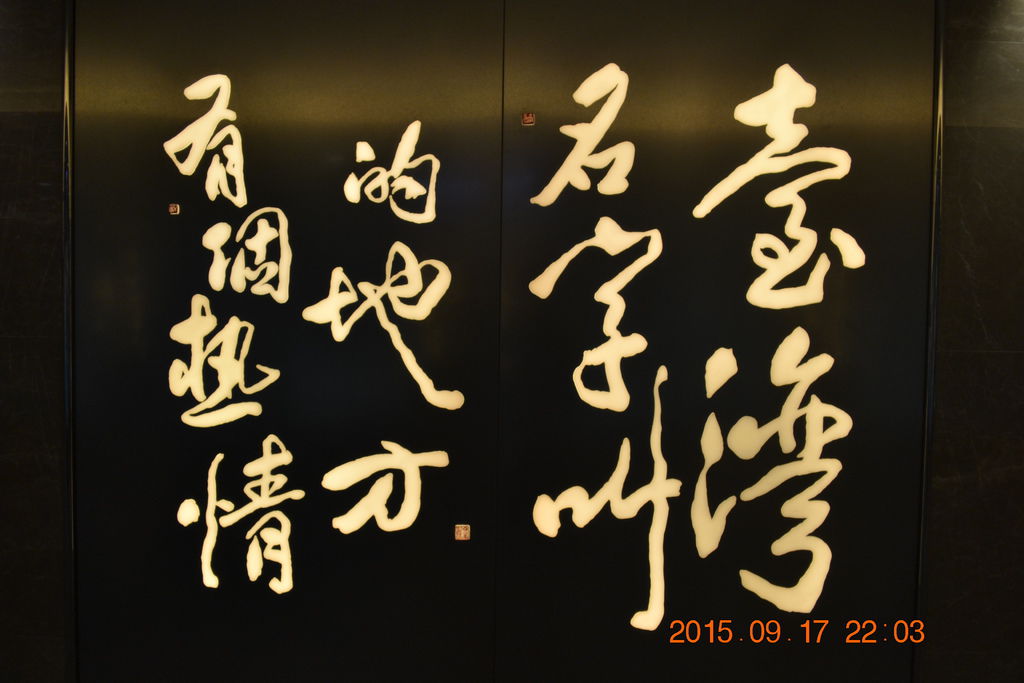 有個熱情
的地方
名字叫
臺灣
2015.09.17 22:03